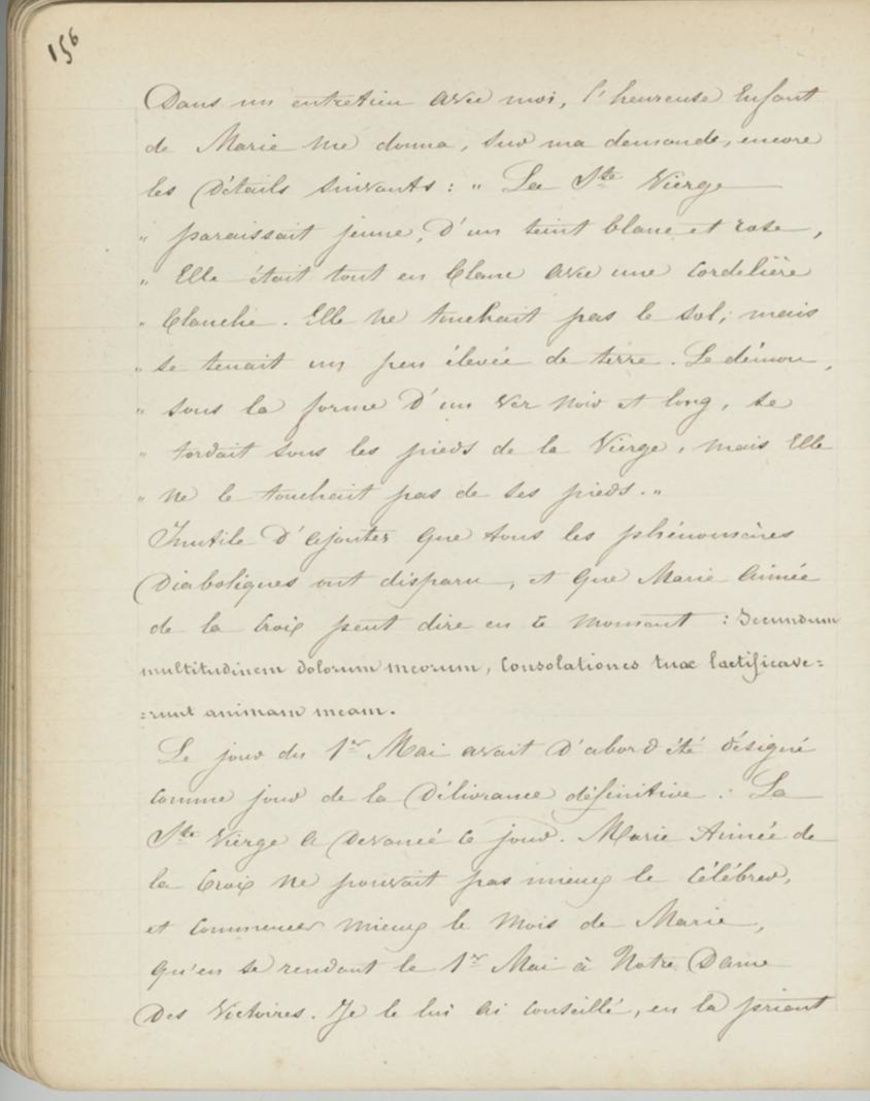 156
Dans un entretien avec moi, l'heureuse Enfant
de Marie me donna, sur ma demande, encore
les détails suivants : " La Ste Vierge
" paraissait jeune, d'un teint blanc et rose,
" Elle était tout en blanc avec une cordelière
" blanche. Elle ne touchait pas le sol; mais
" se tenait un peu élevée de terre. Le démon,
" sous la forme d'un ver noir et long, se
" tordait sous les pieds de la Vierge, mais Elle
" ne le touchait pas de ses pieds. "
Inutile d'ajouter que tous les phénomènes
diaboliques ont disparu, et que Marie Aimée
de la Croix peut dire en ce moment : Secundum
multitudinem dolorum meorum, Consolationes tuae laetificave=
=runt animam meam.
Le jour du 1er Mai avait d'abord été désigné
comme jour de la délivrance définitive : La
Ste Vierge a devancé ce jour. Marie Aimée de
la Croix ne pouvait pas mieux le célébrer,
et commencer mieux le Mois de Marie,
qu'en se rendant le 1er Mai à Notre Dame
des Victoires. Je le lui ai conseillé, en la priant